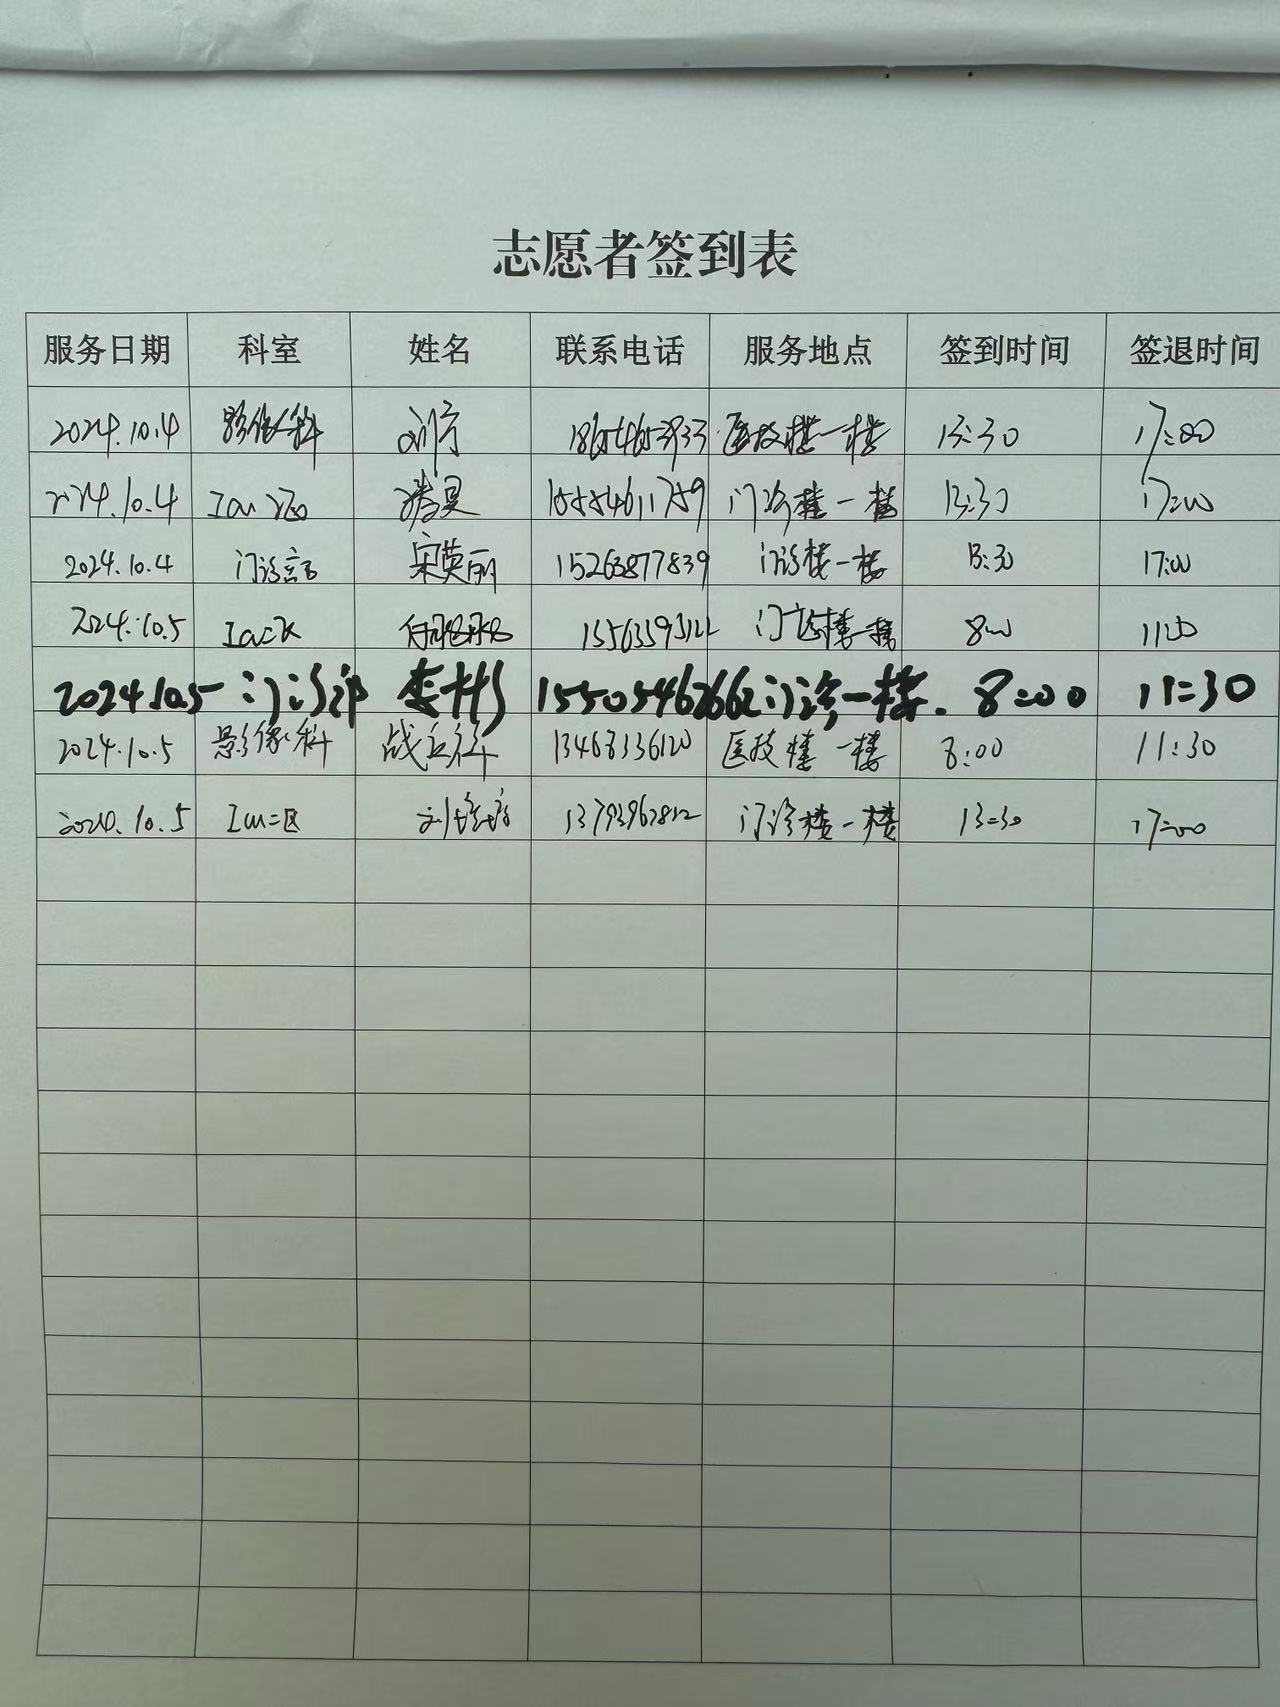 志愿者签到表
服务日期 科室 姓名 联系电话 服务地点 签到时间 签退时间
2024.10.4 影像科 医技楼一楼 13:30 17:00
2024.10.4 Icu 门诊楼一楼 13:30 17:00
2024.10.4 门诊部 宋英丽 15263877839 门诊楼一楼 13:30 17:00
2024.10.5 门诊楼一楼 8:00
2024.10.5 门诊部 15505462662 门诊一楼. 8:00 11:30
2024.10.5 影像科 13468336120 医技楼一楼 8:00 11:30
2024.10.5 Icu二区 门诊楼一楼 13:30 17:00